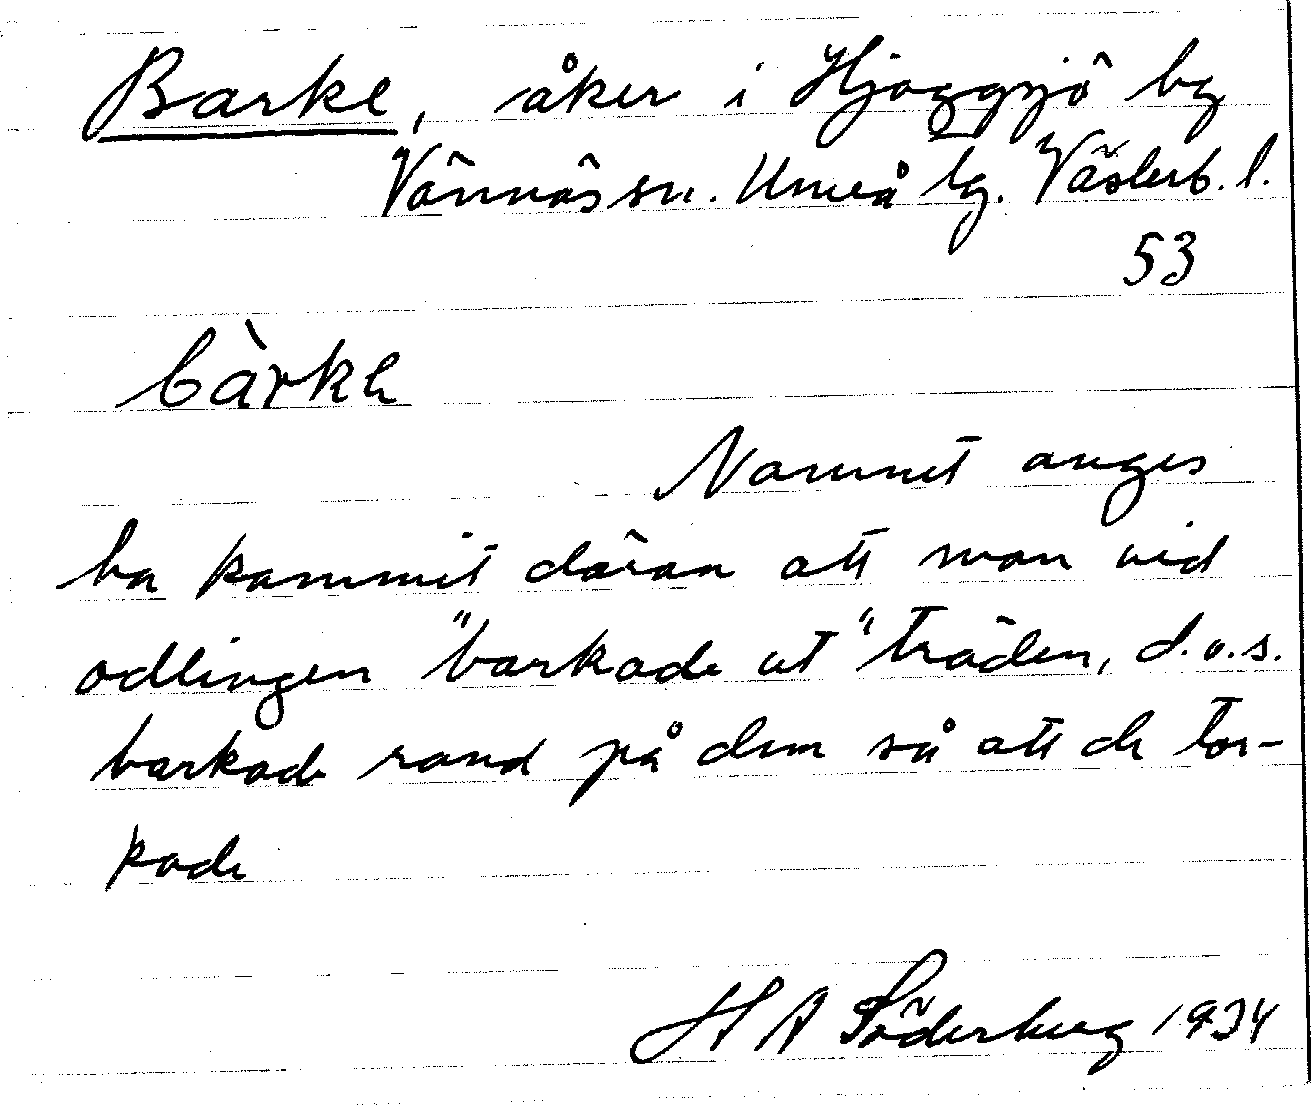 Barke, åker i Hjoggsjö by
Vännäs sn. Umeå tg. Västerb. l.
53
bàrkə
Namnet anges
ha kommit däraa att man vid
odlingen "barkade ut" träden, d.v.s.
barkade rand på dem så att de tor-
kade
H A Söderberg 1934